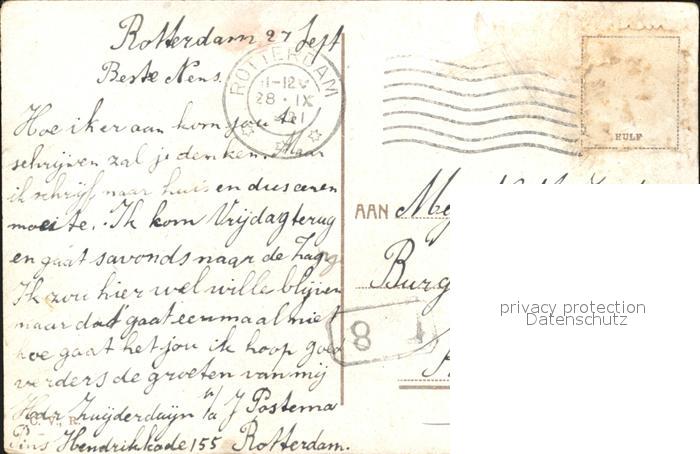 Rotterdam 27 Sept
Beste Nens.
Hoe ik er aan kom jou te
schrijven zal je denken. Maar
ik schrijf naar huis en dus eenen
moeite. Ik kom Vrijdag terug
en gaat savonds naar de Haag
Ik zou hier wel wille blijven
naar dat gaat eenmaal niet
hoe gaat het jou ik hoop goed
verders de groeten van mij
Zuijderduijn p/a J Postema
Pins Hendrikkade 155 Rotterdam.
C. V., R.
ROTTERDAM
-12V
28 · IX
HULP
AAN Me
Burg
8 1
privacy protection
Datenschutz